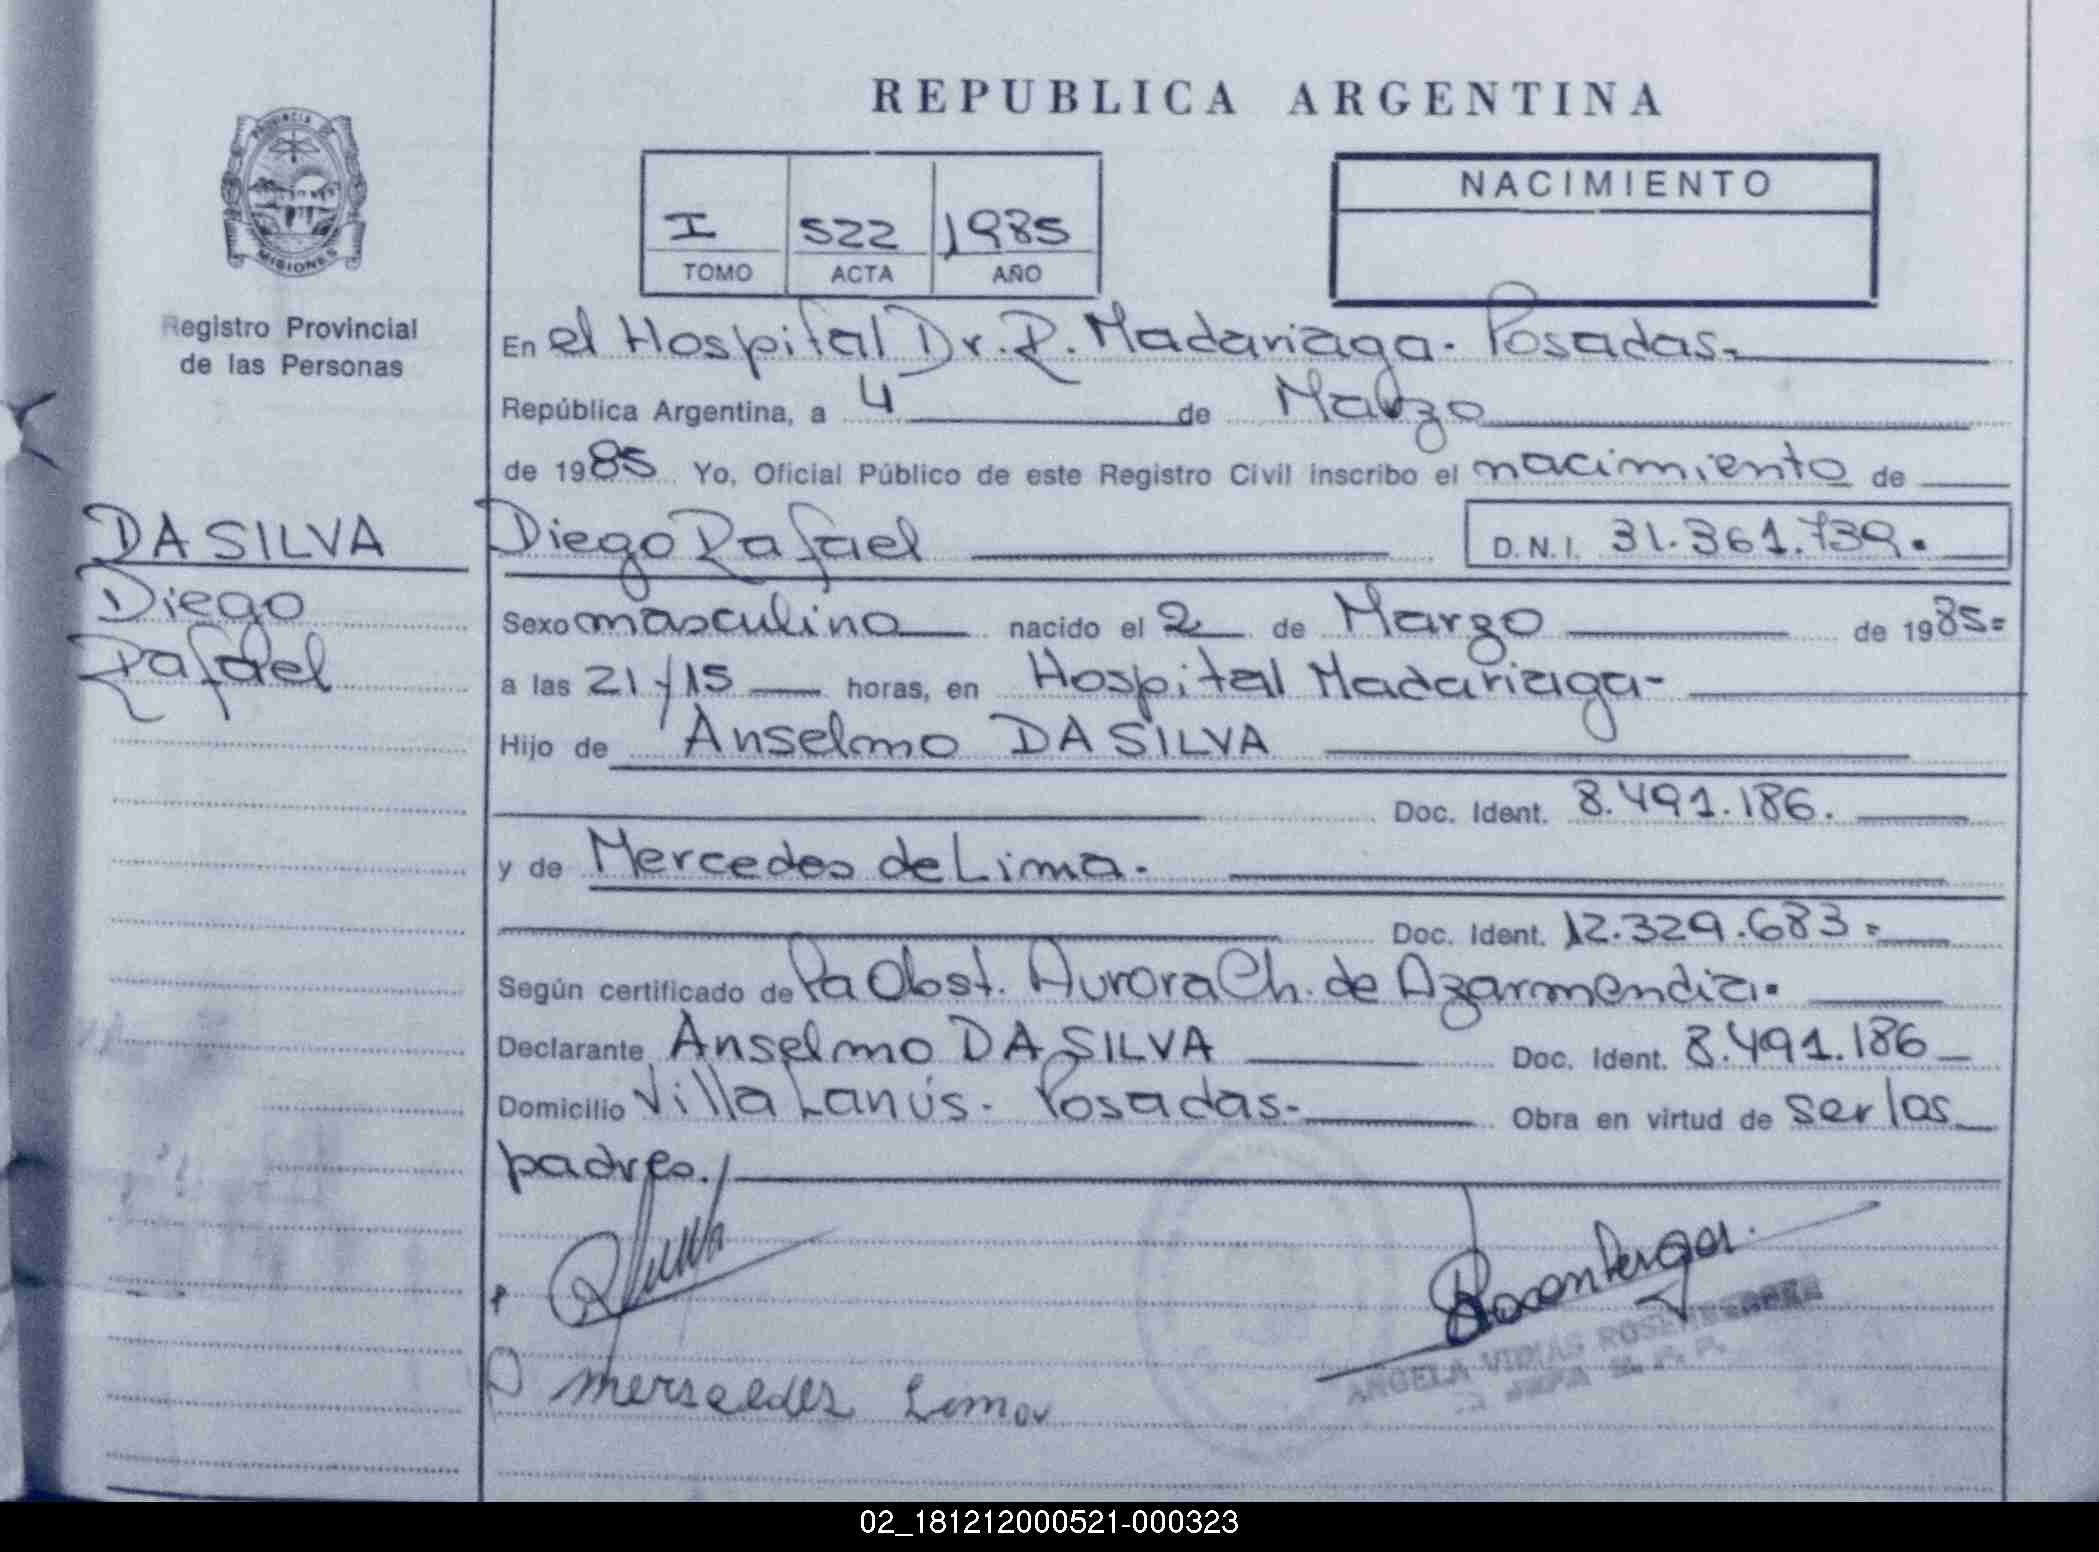 REPUBLICA ARGENTINA
PROVINCIA DE
MISIONES
Registro Provincial
de las Personas
I 522 1985
TOMO ACTA AÑO
NACIMIENTO
En el Hospital Dr. R. Madariaga. Posadas.
República Argentina, a 4 de Marzo
de 1985 Yo, Oficial Público de este Registro Civil inscribo el nacimiento de
DA SILVA
Diego
Rafael
Diego Rafael D.N.I. 31.361.739.
Sexo masculino nacido el 2 de Marzo de 1985=
a las 21 y 15 horas, en Hospital Madariaga-
Hijo de Anselmo DA SILVA
Doc. Ident. 8.491.186.
y de Mercedes de Lima.
Doc. Ident. 12.329.683.
Según certificado de Pa Obst. Aurora Ch. de Azarmendia.
Declarante Anselmo DA SILVA Doc. Ident. 8.491.186
Domicilio Villa Lanús. Posadas. Obra en virtud de ser los
padres.
Rosenberger
ANGELA VIDMAS ROSENBERGER
mersaedes Lima
02_181212000521-000323